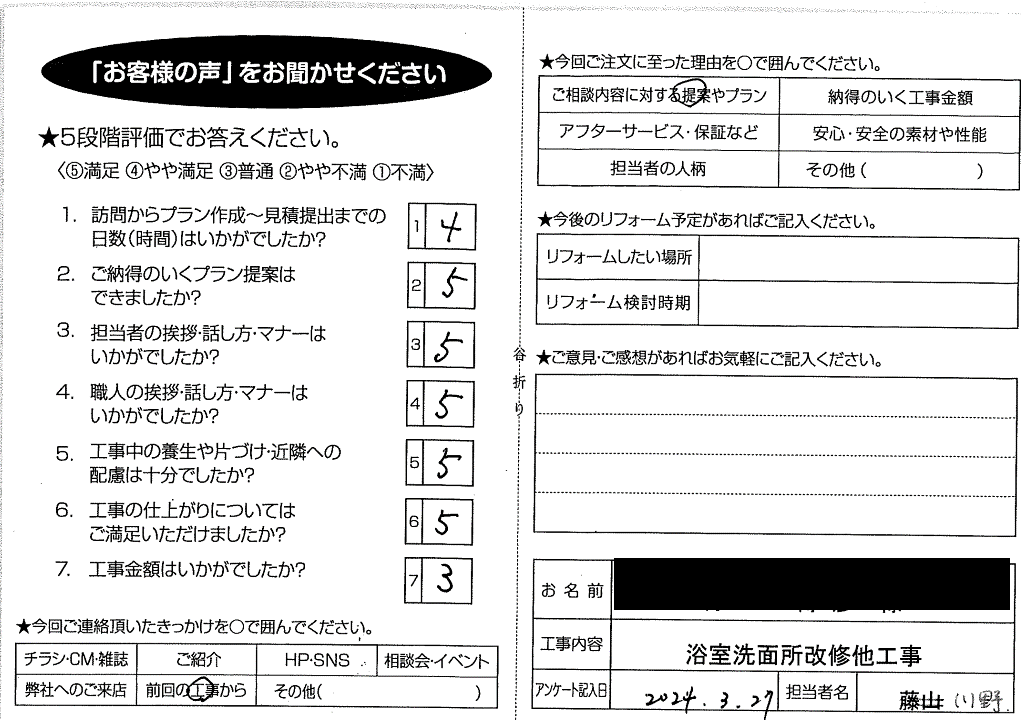 「お客様の声」をお聞かせください
★5段階評価でお答えください。
〈⑤満足 ④やや満足 ③普通 ②やや不満 ①不満〉
1. 訪問からプラン作成～見積提出までの
日数(時間)はいかがでしたか?
1 4
2. ご納得のいくプラン提案は
できましたか?
2 5
3. 担当者の挨拶・話し方・マナーは
いかがでしたか?
3 5
4. 職人の挨拶・話し方・マナーは
いかがでしたか?
4 5
5. 工事中の養生や片づけ・近隣への
配慮は十分でしたか?
5 5
6. 工事の仕上がりについては
ご満足いただけましたか?
6 5
7. 工事金額はいかがでしたか?
7 3
★今回ご連絡頂いたきっかけを○で囲んでください。
チラシ・CM・雑誌 ご紹介 HP・SNS 相談会・イベント
弊社へのご来店 前回の工事から その他( )
谷折り
★今回ご注文に至った理由を○で囲んでください。
ご相談内容に対する提案やプラン 納得のいく工事金額
アフターサービス・保証など 安心・安全の素材や性能
担当者の人柄 その他( )
★今後のリフォーム予定があればご記入ください。
リフォームしたい場所
リフォーム検討時期
★ご意見・ご感想があればお気軽にご記入ください。
お名前
工事内容 浴室洗面所改修他工事
アンケート記入日 2024.3.27 担当者名 藤山 川野